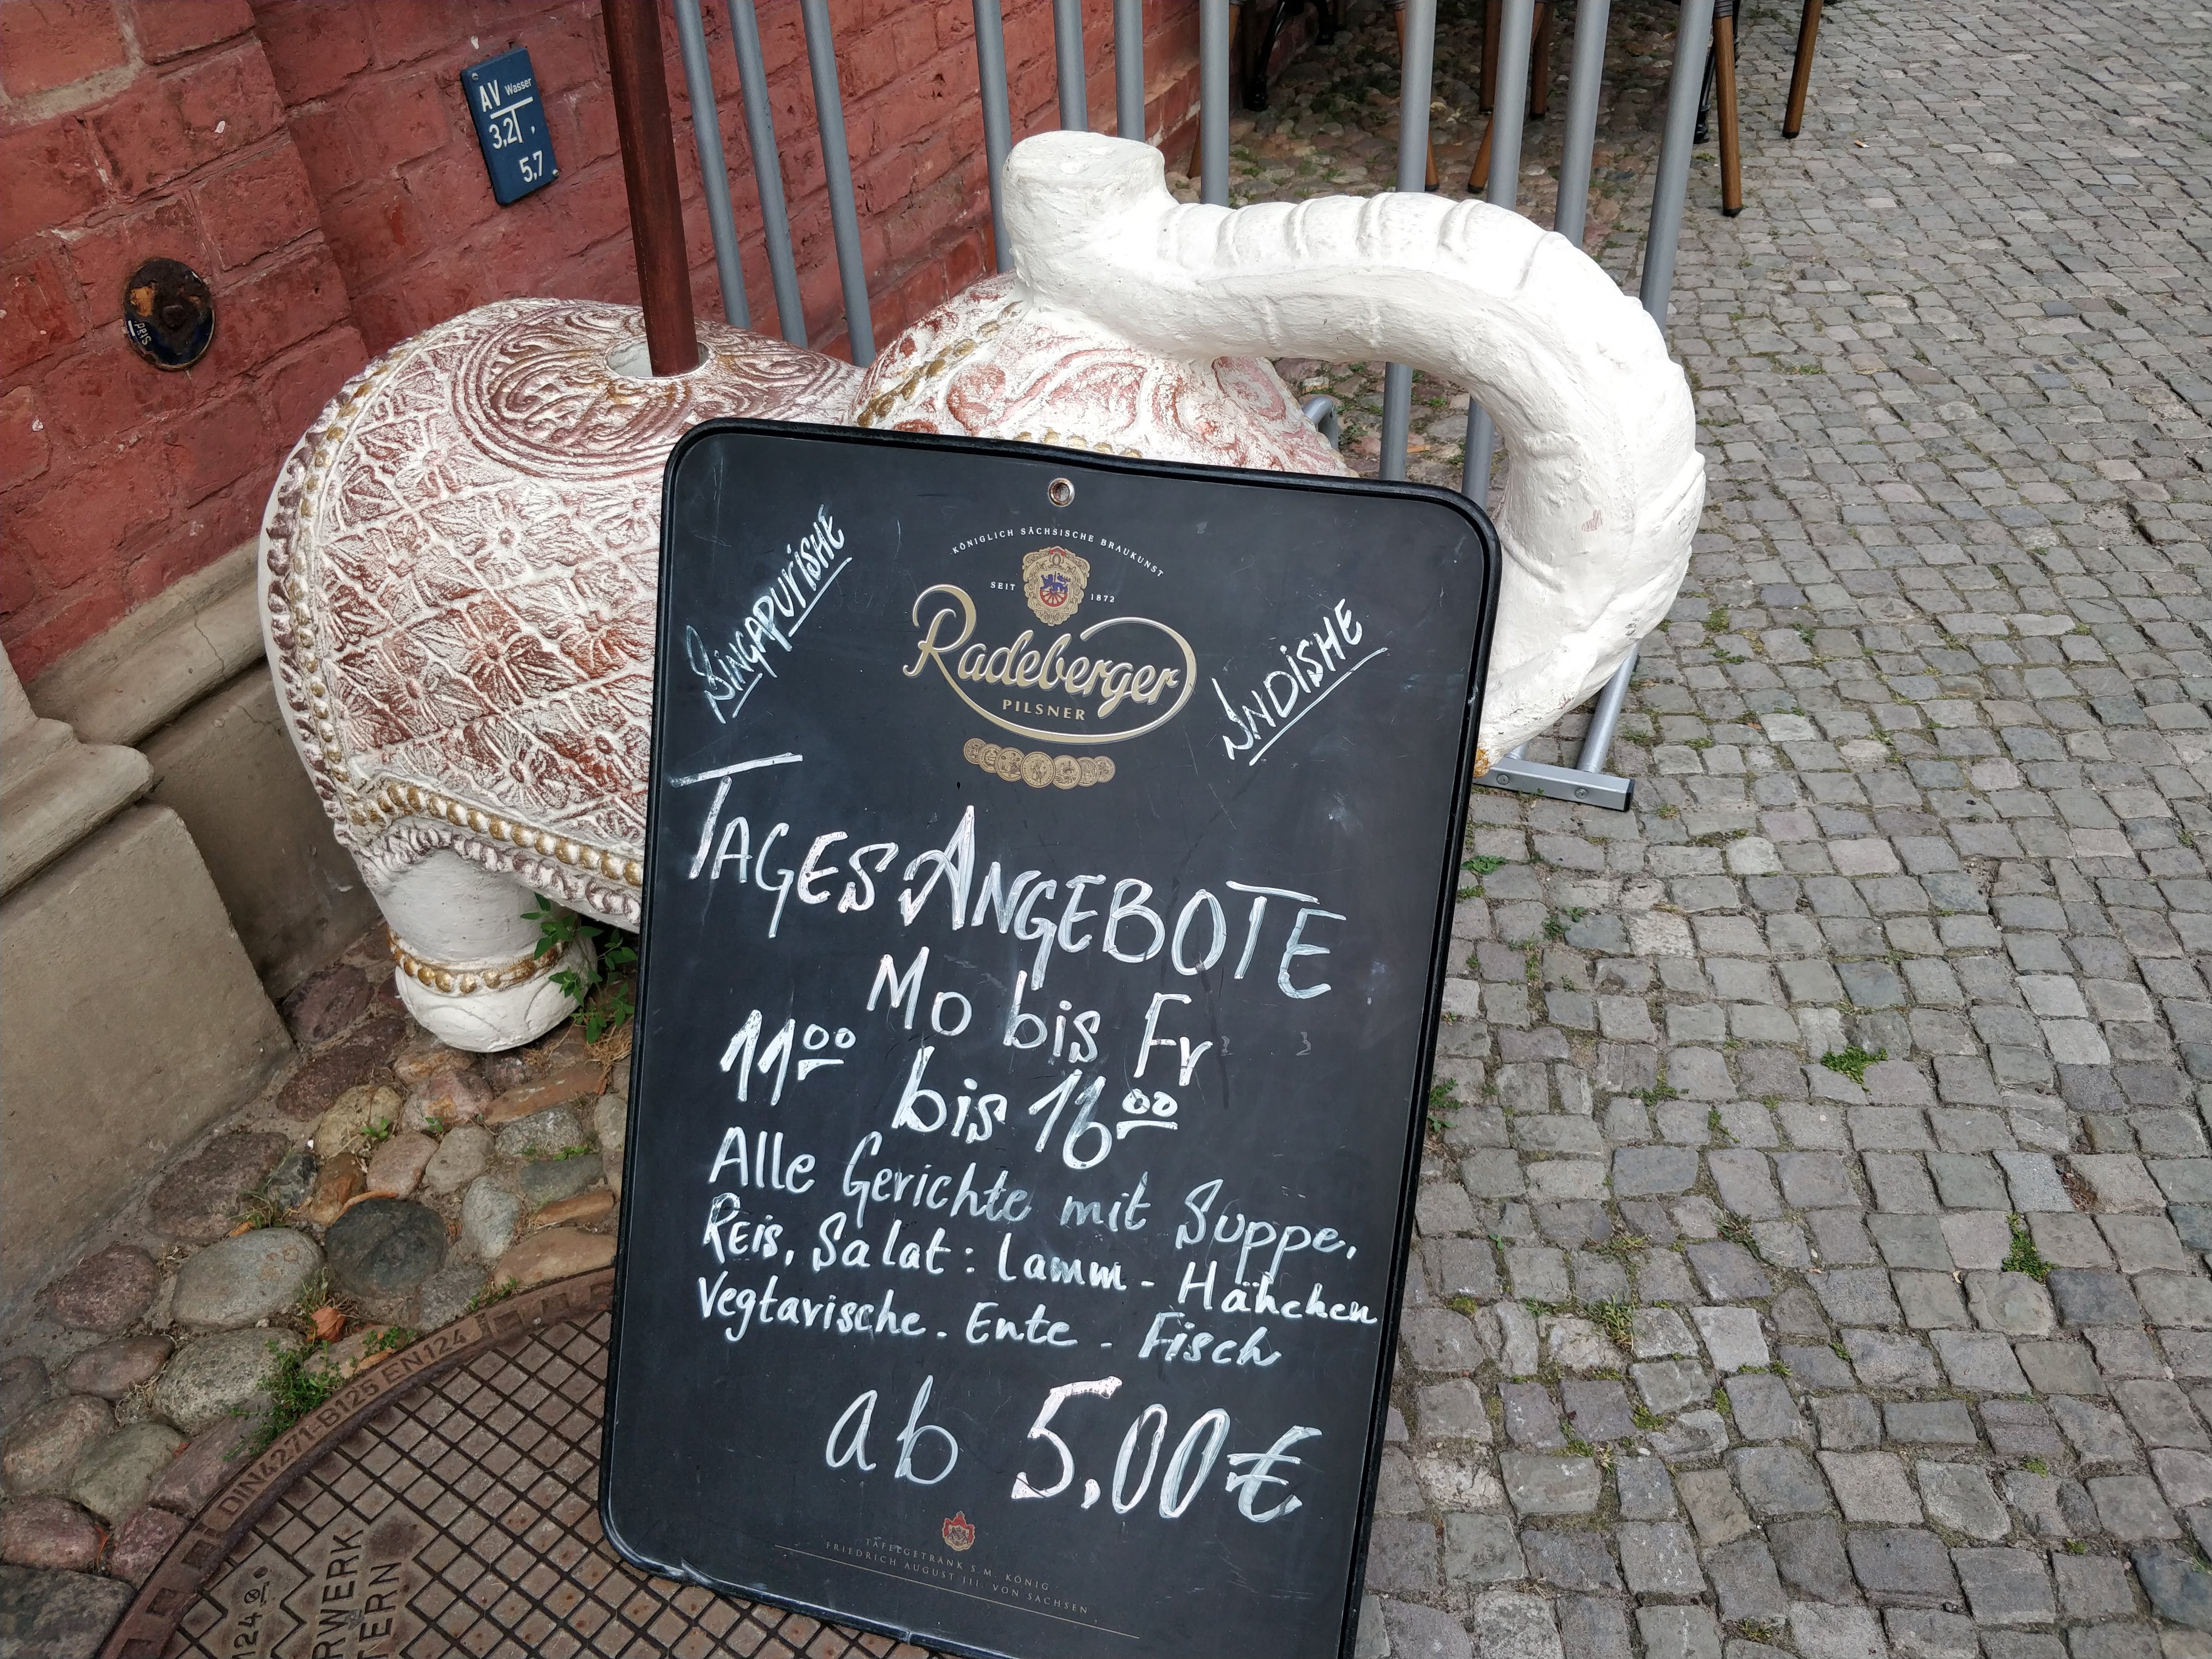 AV Wasser
3,2
5,7
PRIS
SiNGAPURiSHE
KÖNIGLICH SÄCHSISCHE BRAUKUNST
SEIT 1872
Radeberger
PILSNER
iNDiSHE
TAGES ANGEBOTE
Mo bis Fr
11 00 bis 16 00
Alle Gerichte mit Suppe,
REis, Salat: Lamm - Hähchen
Vegtarische - Ente - Fisch
ab 5,00 €
TAFELGETRÄNK S.M. KÖNIG
FRIEDRICH AUGUST III. VON SACHSEN
DIN4271-B125 EN124
124
RWERK
TERN